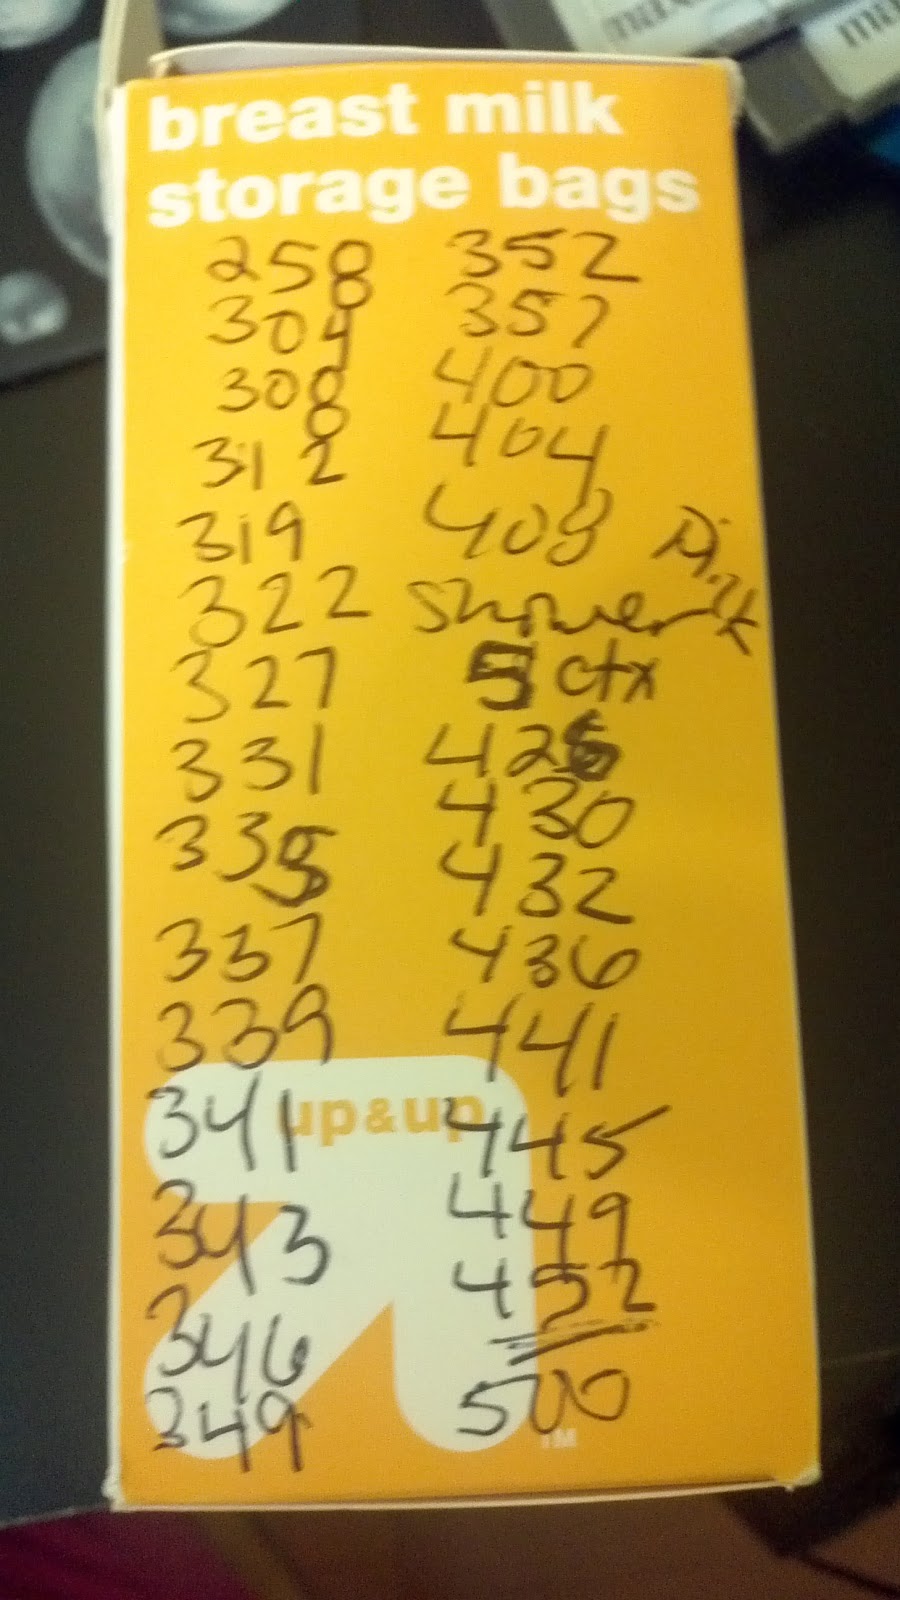 breast milk
storage bags
258
304
308
312
319
322
327
331
335
337
339
341
343
346
349
352
357
400
404
408
shower
5 ctx
426
430
432
436
441
445
449
452
500
up&up
TM